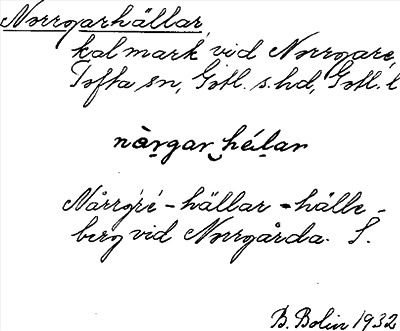 Norrgarhällar,
kalmark vid Norrgare,
Tofta sn, Gotl. s. hd, Gotl. l
nàrgar hélar
Nårrgré-hällar = hälle-
berg vid Norrgårda. S.
B. Bolin 1932